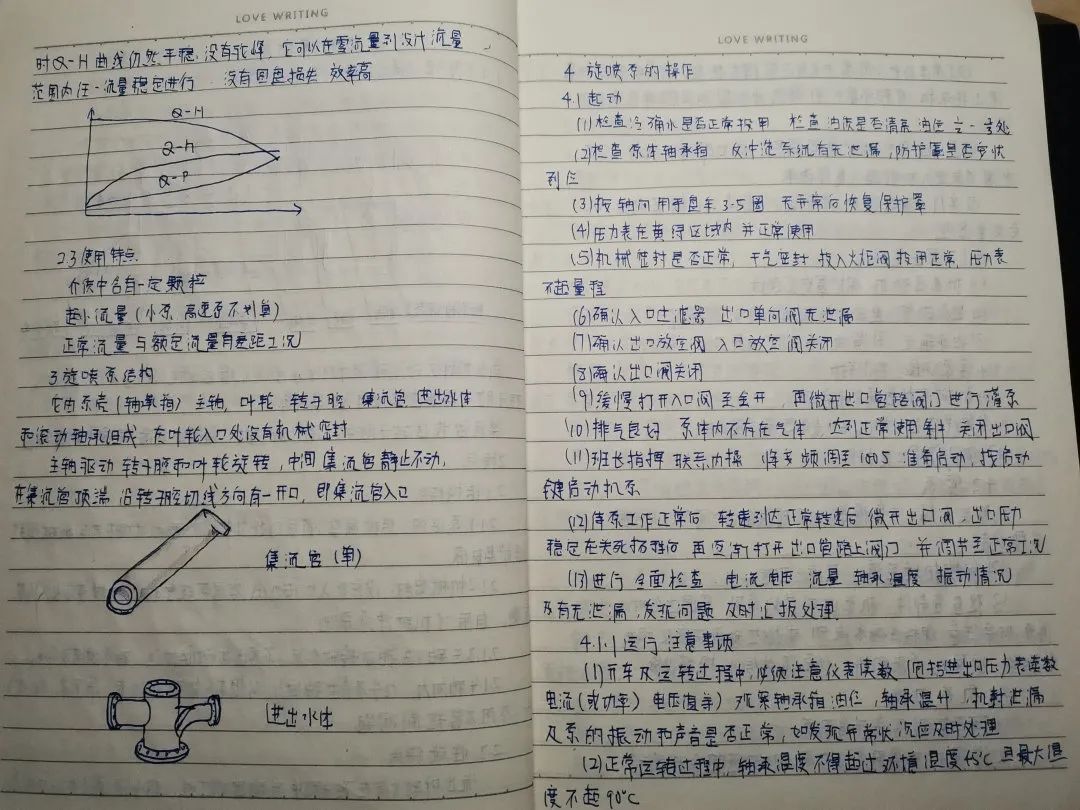 LOVE WRITING
时Q-H曲线仍然平稳,没有驼峰,它可以在零流量到设计流量
范围内任一流量稳定进行 没有圆盘损失 效率高
Q-H
Q-η
Q-P
2.3使用特点
介质中含有一定颗粒
超小流量(小泵 高速泵不划算)
正常流量与额定流量有差距工况
3旋喷泵结构
它由泵壳(轴承箱)主轴,叶轮 转子腔,集流管 进出水体
和滚动轴承组成 在叶轮入口处设有机械密封
主轴驱动转子腔和叶轮旋转,中间集流管静止不动,
在集流管顶端 沿转子腔切线方向有一开口,即集流管入口
集流管(单)
进出水体
LOVE WRITING
4 旋喷泵的操作
4.1起动
(1)检查冷确水是否正常投用 检查油质是否清晰 油位
(2)检查泵体轴承箱 反冲洗系统有无泄漏,防护罩是否完状
到位
(3)按轴向用手盘车3-5圈 无异常后恢复保护罩
(4)压力表在黄绿区域内并正常使用
(5)机械密封是否正常,干气密封投入火炬阀投用正常,压力表
不超量程
(6)确认入口过滤器 出口单向阀无泄漏
(7)确认出口放空阀 入口放空阀关闭
(8)确认出口阀关闭
(9)缓慢打开入口阀至全开,再微开出口管路阀门进行灌泵
(10)排气良好 泵体内不存在气体 达到正常使用条件 关闭出口阀
(11)班长指挥 联系内操 将变频调至100% 准备启动,按启动
键启动机泵
(12)待泵工作正常后 转速到达正常转速后 微开出口阀,出口压力
稳定在关死扬程后 再逐渐打开出口管路上阀门 并调节至正常工况
(13)进行全面检查 电流电压 流量 轴承温度 振动情况
及有无泄漏,发现问题及时汇报处理
4.1.1运行注意事项
(1)开车及运转过程中,必须注意仪表读数(包括进出口压力表读数
电流(或功率)电压值等)观察轴承箱油位,轴承温升,机封泄漏
及泵的振动和声音是否正常,如发现异常状况应及时处理
(2)正常运转过程中,轴承温度不得超过环境温度45℃ 且最大温
度不超90℃